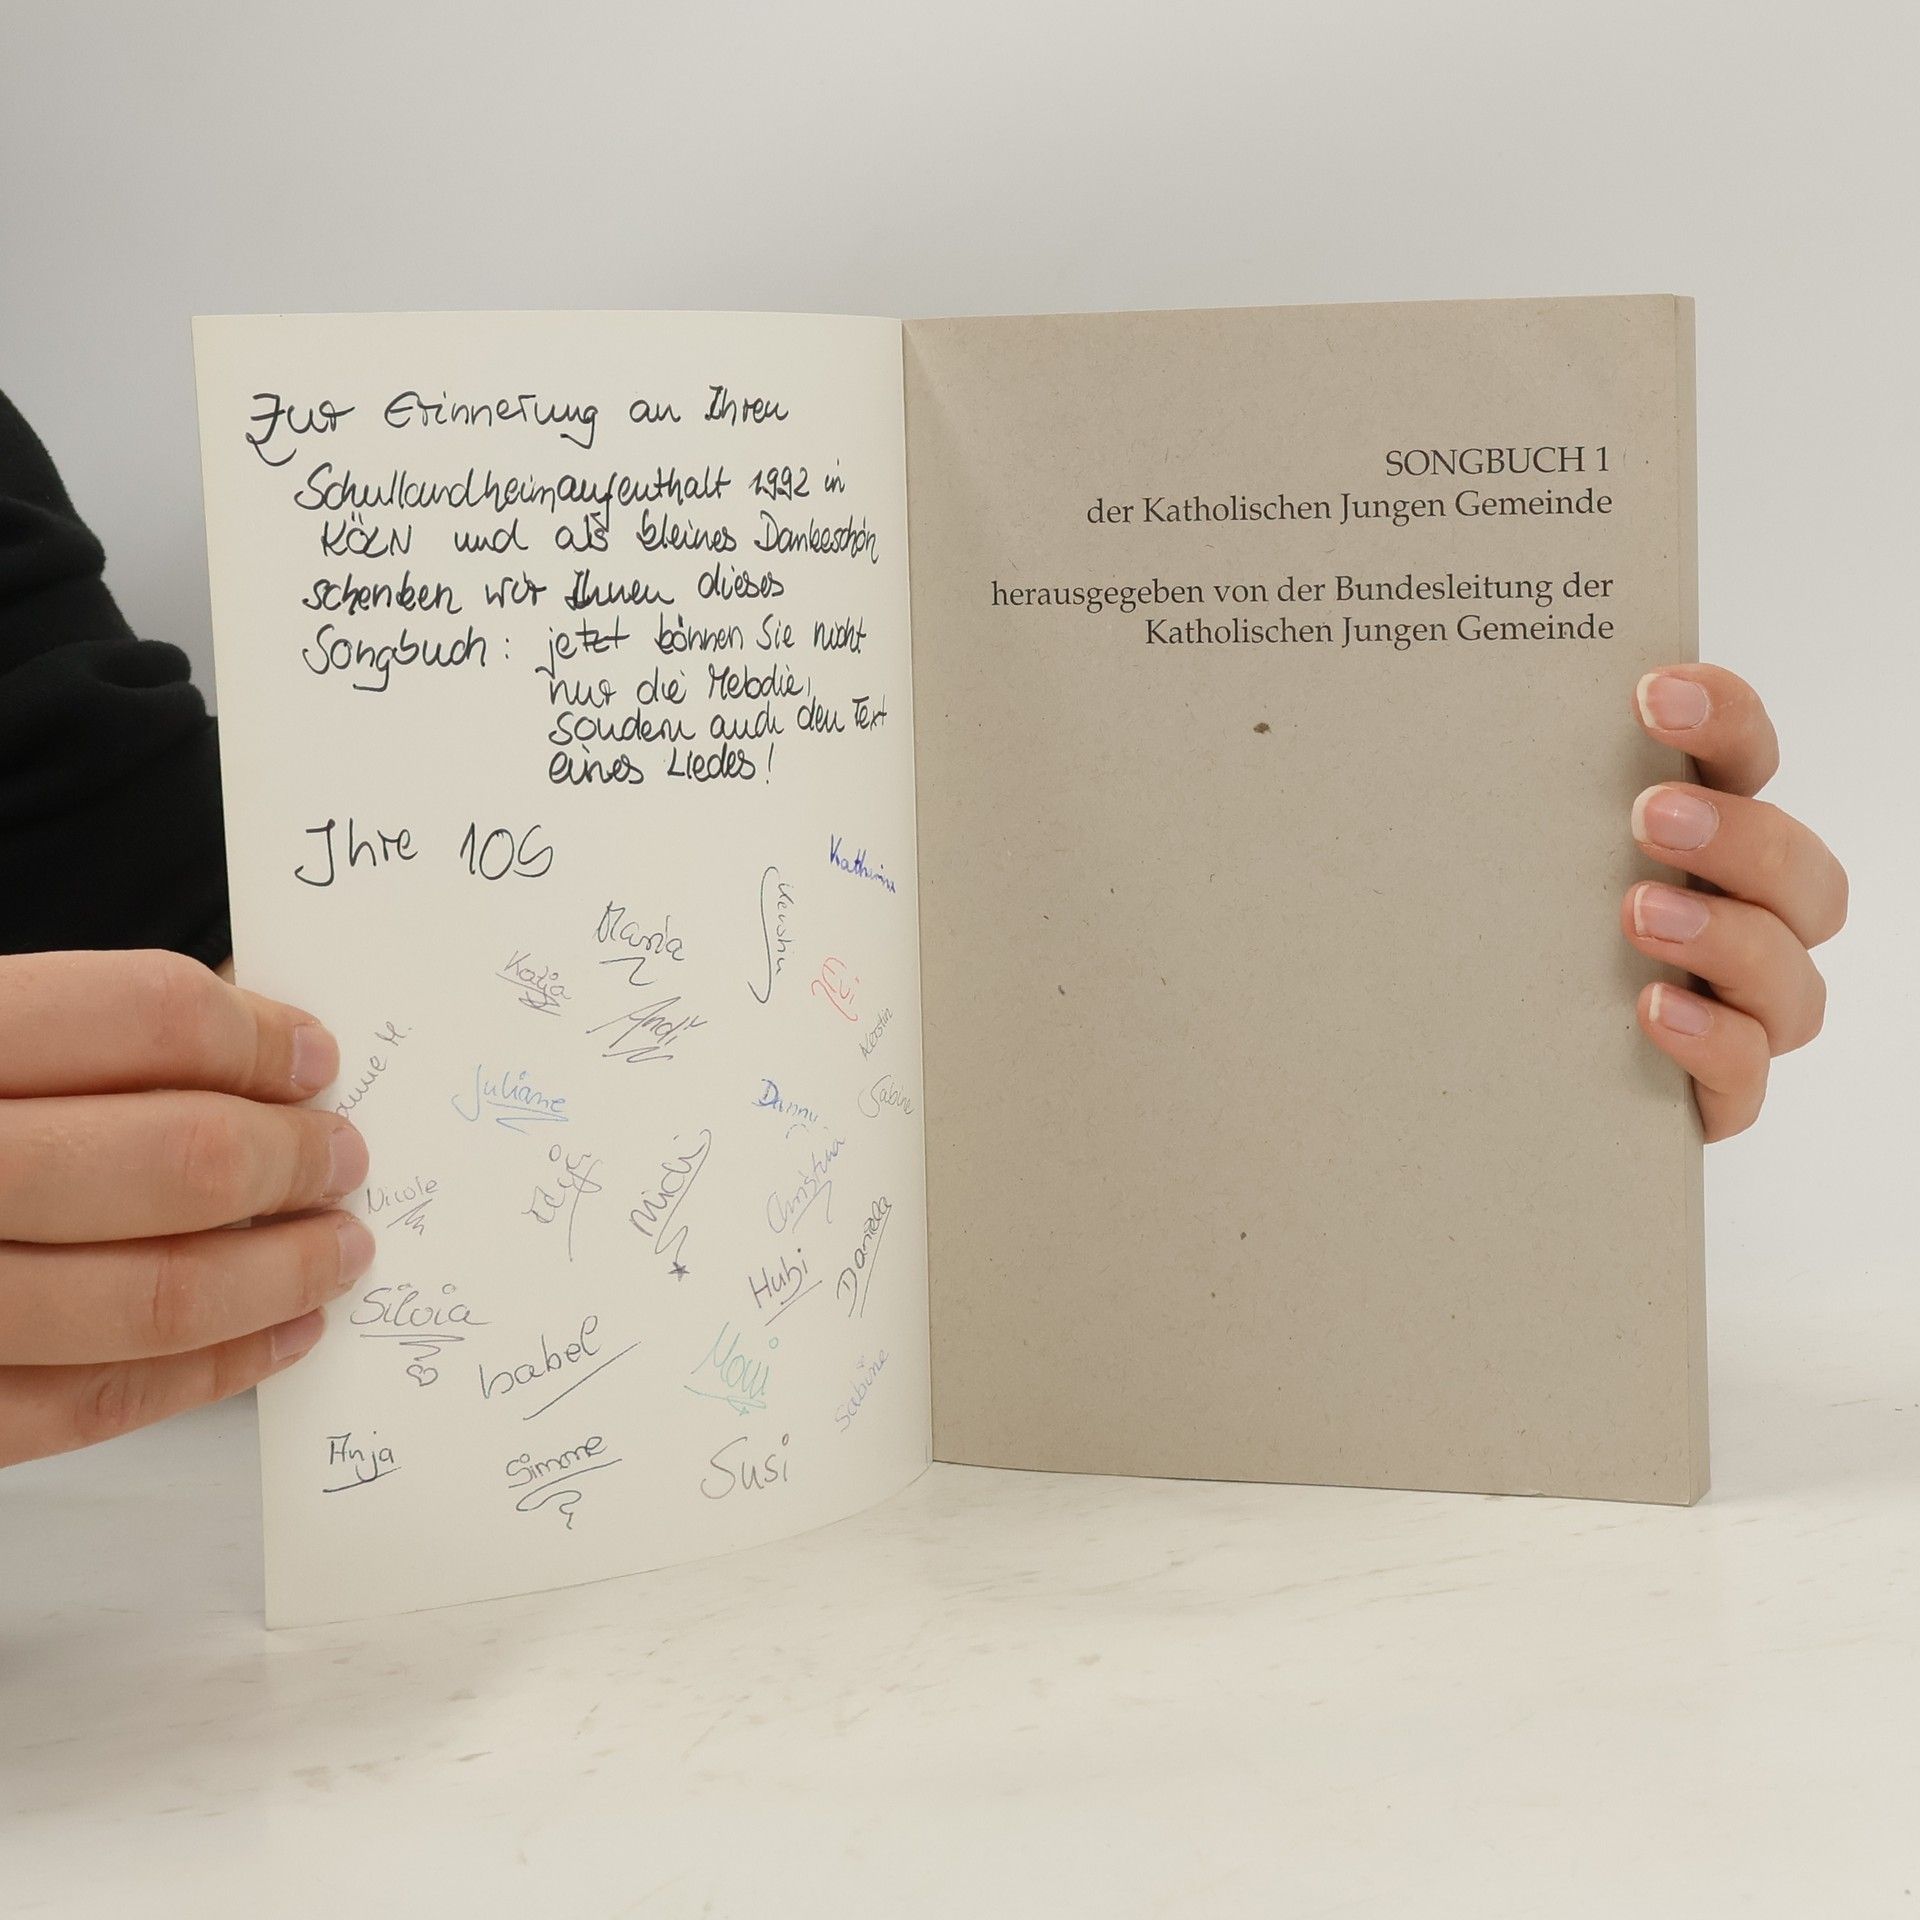 Zur Erinnerung an Ihren
Schullandheimaufenthalt 1992 in
KÖLN und als kleines Dankeschön
schenken wir Ihnen dieses
Songbuch: jetzt können Sie nicht
nur die Melodie,
sondern auch den Text
eines Liedes!
Ihre 10S
Katharina
Maria
Kerstin
Katja
Andi
Kerstin
Juliane
Danny
Sabine
Nicole
Michi
Christina
Hubi
Daniela
Silvia
Isabel
Moni
Sabine
Anja
Simone
Susi
SONGBUCH 1
der Katholischen Jungen Gemeinde
herausgegeben von der Bundesleitung der
Katholischen Jungen Gemeinde